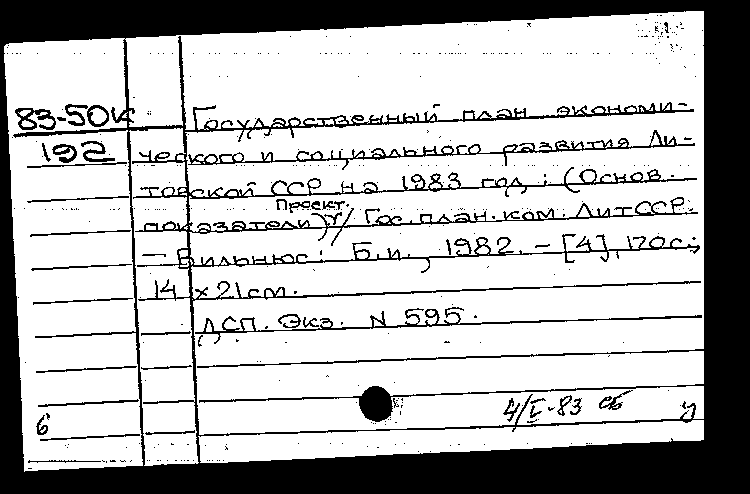 83-50К Государственный план экономи-
192 ческого и социального развития Ли-
товской ССР на 1983 год : (Основ.
Проект.
показатели) / Гос. план. ком. ЛитССР.
— Вильнюс : Б.и., 1982. - [4], 170с.;
14 x 21 см.
ДСП. Экз. N 595.
4/I-83 сб
6